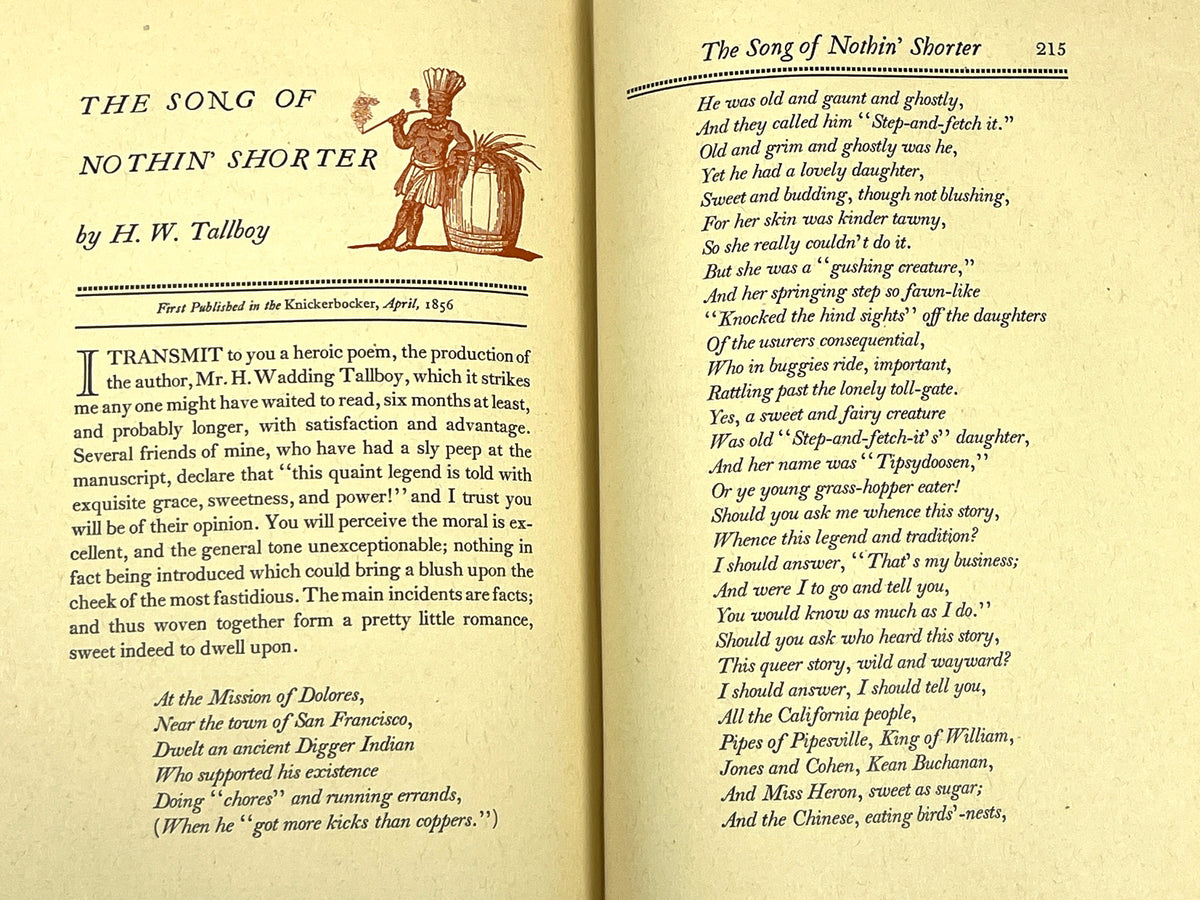 THE SONG OF
NOTHIN' SHORTER
by H. W. Tallboy
First Published in the Knickerbocker, April, 1856
I TRANSMIT to you a heroic poem, the production of
the author, Mr. H. Wadding Tallboy, which it strikes
me any one might have waited to read, six months at least,
and probably longer, with satisfaction and advantage.
Several friends of mine, who have had a sly peep at the
manuscript, declare that “this quaint legend is told with
exquisite grace, sweetness, and power!” and I trust you
will be of their opinion. You will perceive the moral is ex-
cellent, and the general tone unexceptionable; nothing in
fact being introduced which could bring a blush upon the
cheek of the most fastidious. The main incidents are facts;
and thus woven together form a pretty little romance,
sweet indeed to dwell upon.
At the Mission of Dolores,
Near the town of San Francisco,
Dwelt an ancient Digger Indian
Who supported his existence
Doing “chores” and running errands,
(When he “got more kicks than coppers.”)
The Song of Nothin' Shorter 215
He was old and gaunt and ghostly,
And they called him “Step-and-fetch it.”
Old and grim and ghostly was he,
Yet he had a lovely daughter,
Sweet and budding, though not blushing,
For her skin was kinder tawny,
So she really couldn't do it.
But she was a “gushing creature,”
And her springing step so fawn-like
“Knocked the hind sights” off the daughters
Of the usurers consequential,
Who in buggies ride, important,
Rattling past the lonely toll-gate.
Yes, a sweet and fairy creature
Was old “Step-and-fetch-it's” daughter,
And her name was “Tipsydoosen,”
Or ye young grass-hopper eater!
Should you ask me whence this story,
Whence this legend and tradition?
I should answer, “That's my business;
And were I to go and tell you,
You would know as much as I do.”
Should you ask who heard this story,
This queer story, wild and wayward?
I should answer, I should tell you,
All the California people,
Pipes of Pipesville, King of William,
Jones and Cohen, Kean Buchanan,
And Miss Heron, sweet as sugar;
And the Chinese, eating birds'-nests,